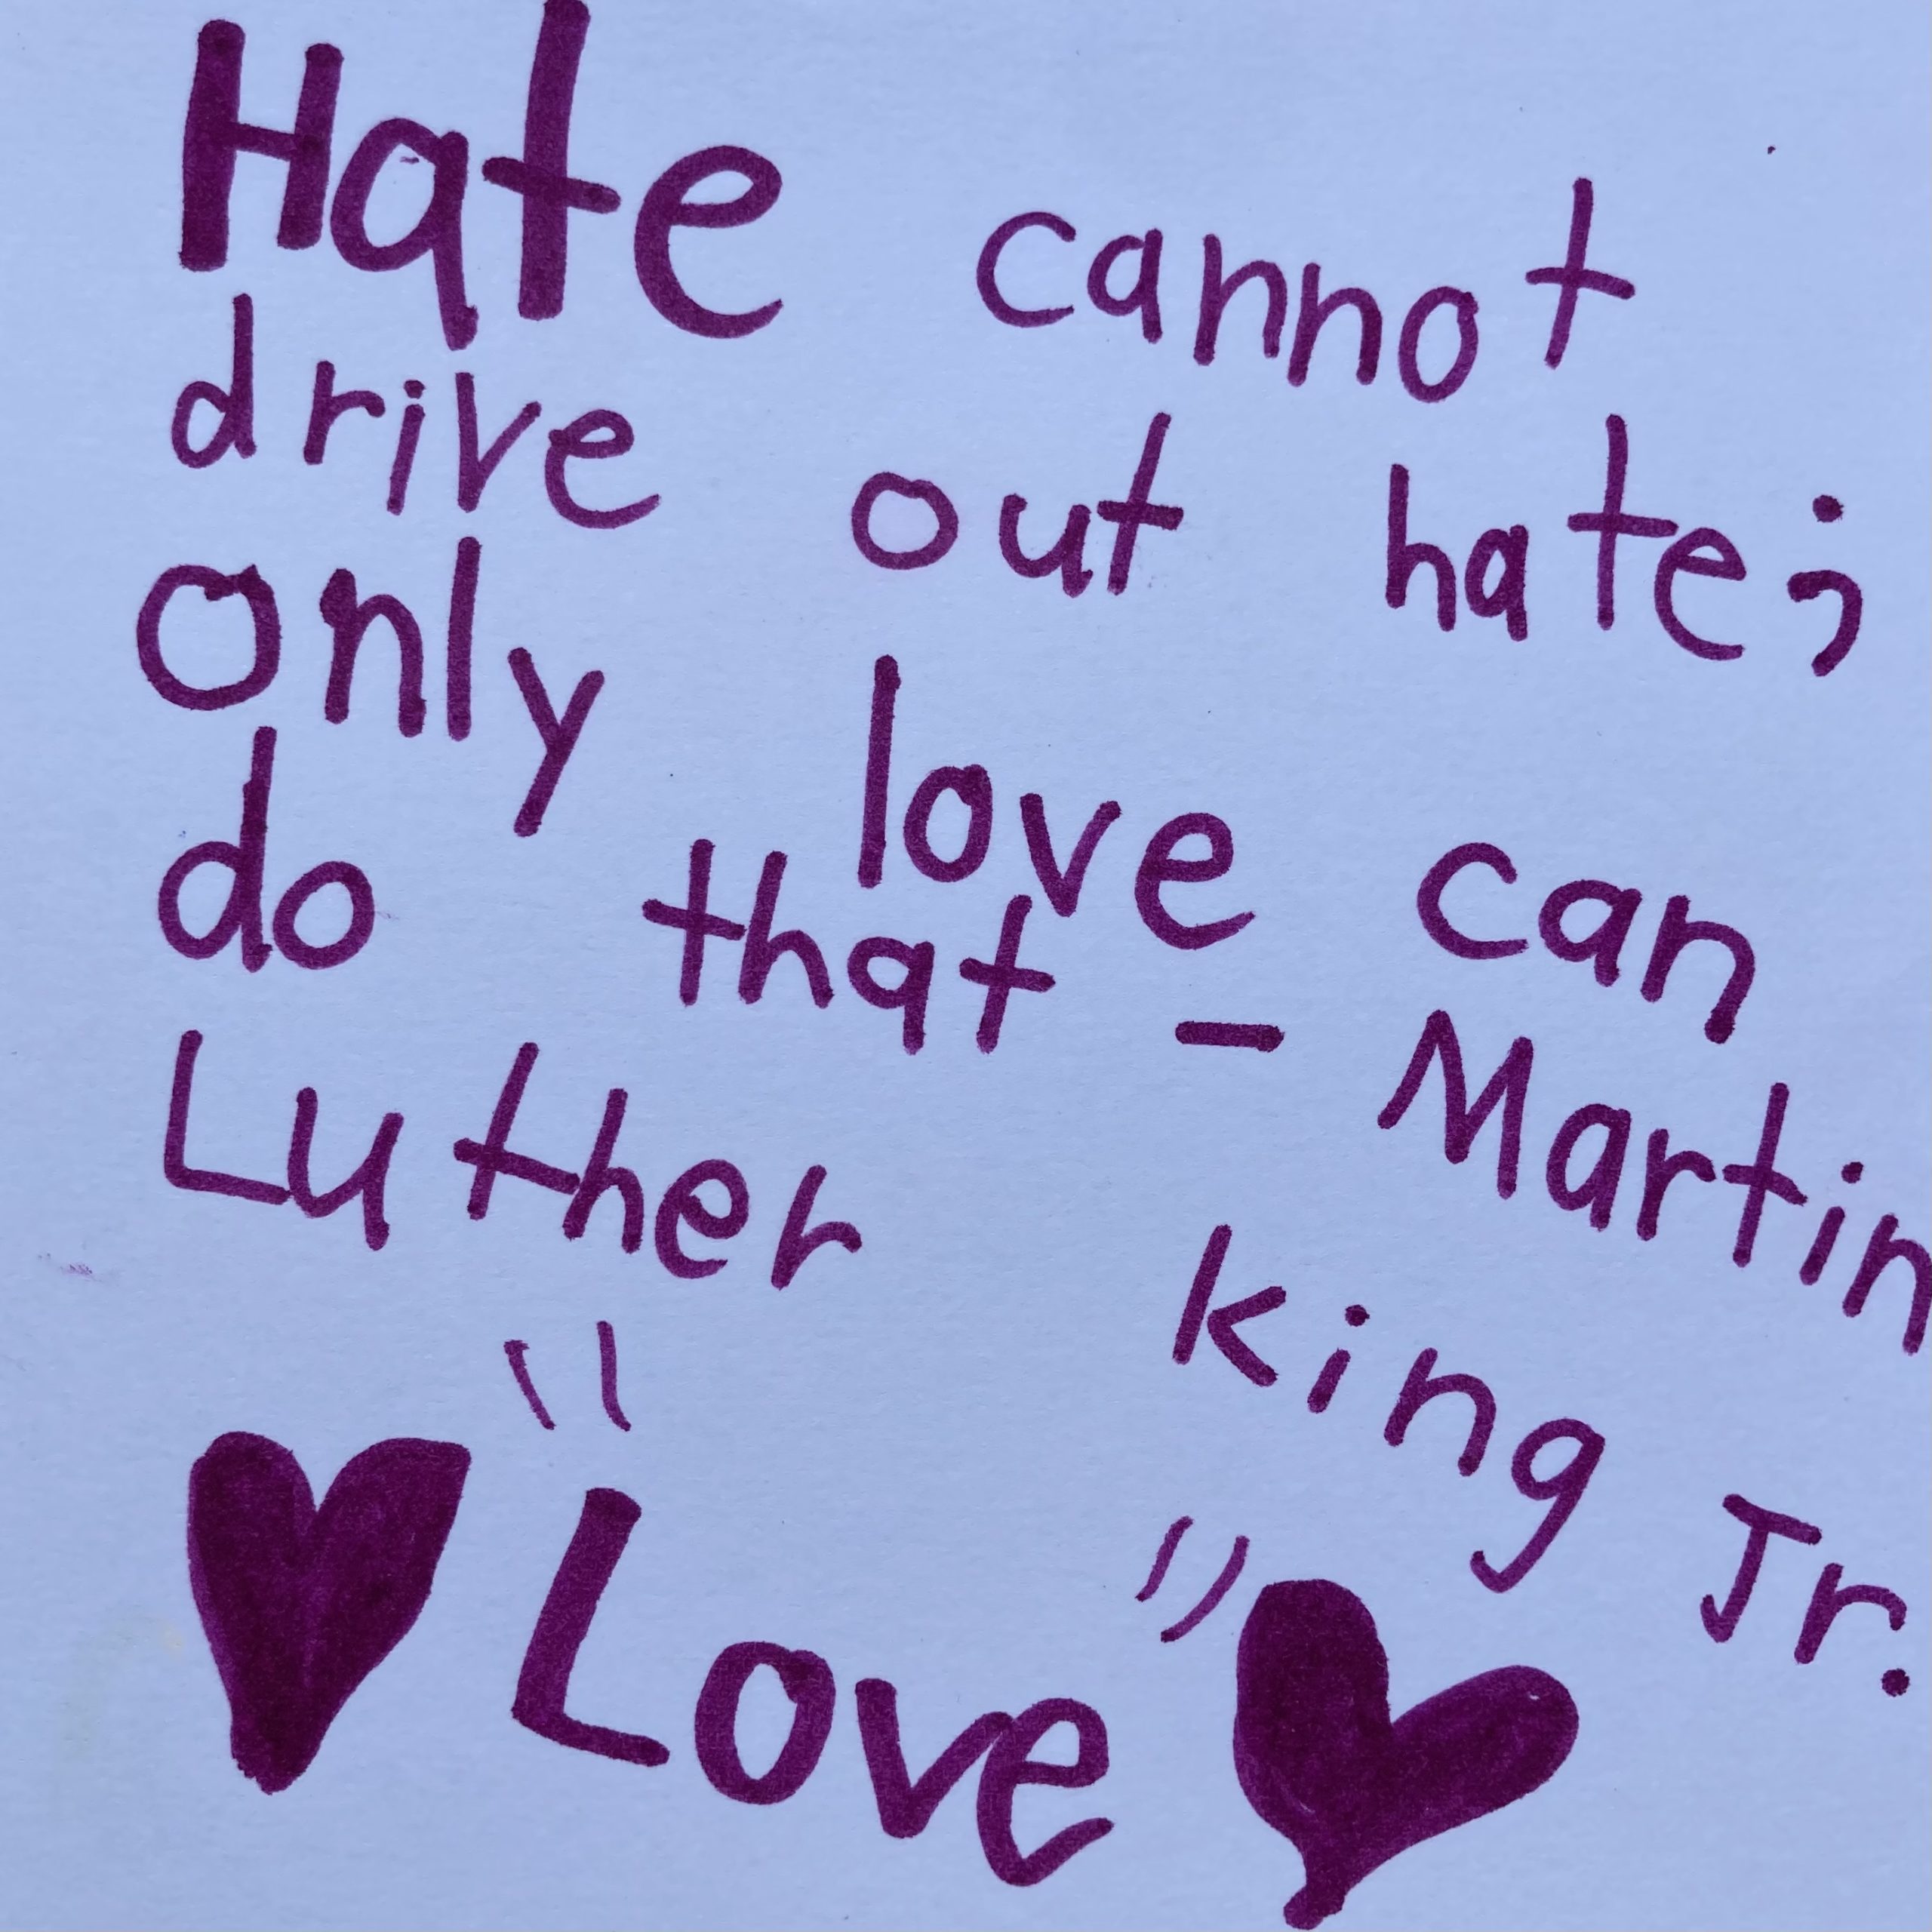 Hate cannot
drive out hate;
only love can
do that - Martin
Luther King Jr.
"Love"